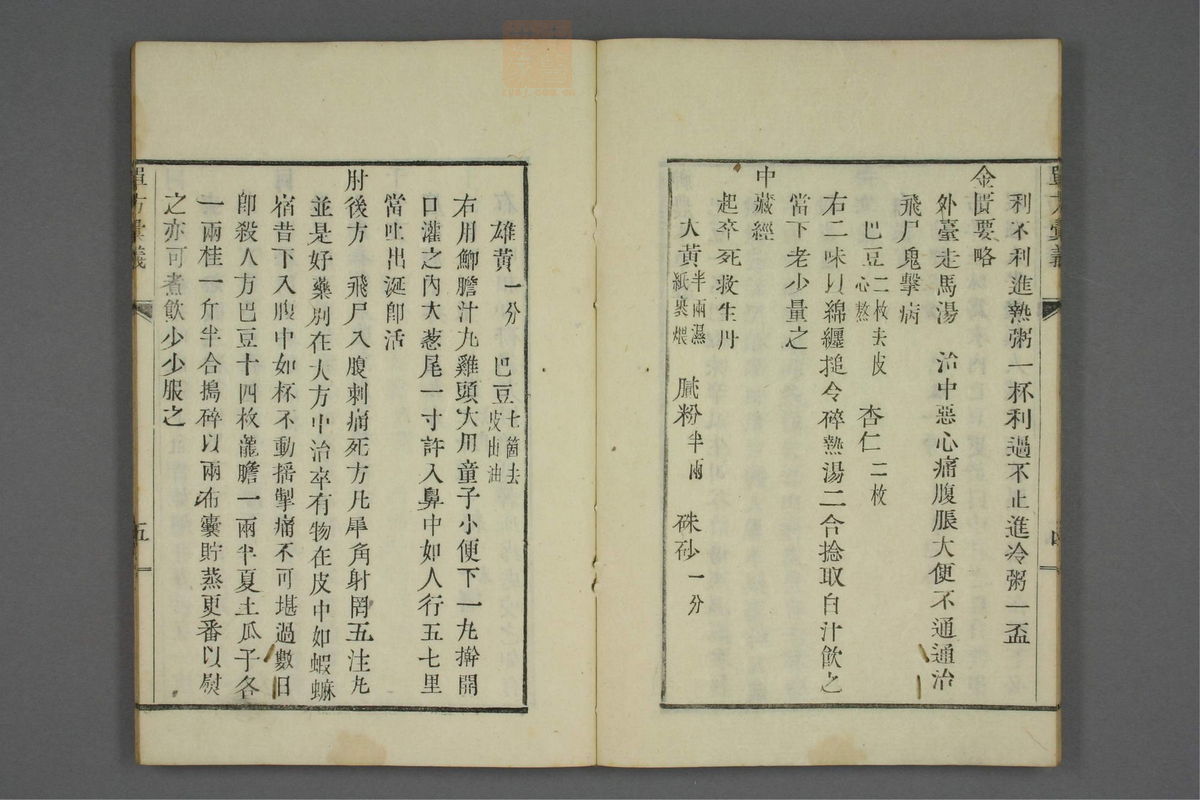 利不利進熱粥一杯利過不止進冷粥一盃
金匱要略
外臺走馬湯　治中惡心痛腹脹大便不通通治
飛尸鬼擊病
巴豆二枚去皮心熬　杏仁二枚
右二味以綿纏搥令碎熱湯二合捻取白汁飲之
當下老少量之
中藏經
起卒死救生丹
大黃半兩濕紙裹煨　膩粉半兩　硃砂一分
雄黃一分　巴豆七箇去皮出油
右用鯽膽汁丸雞頭大用童子小便下一丸擀開
口灌之內大葱尾一寸許入鼻中如人行五七里
當吐出涎卽活
肘後方　飛尸入腹刺痛死方凡犀角射罔五注丸
並是好藥別在大方中治卒有物在皮中如蝦蟆
宿昔下入腹中如杯不動搖掣痛不可堪過數日
卽殺人方巴豆十四枚龍膽一兩半夏土瓜子各
一兩桂一斤半合搗碎以兩布囊貯蒸更番以熨
之亦可煮飲少少服之
單方彙義
五